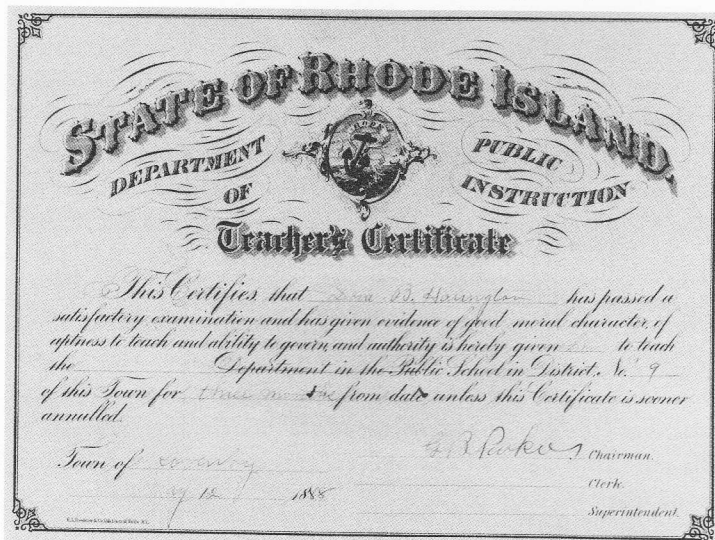 STATE OF RHODE ISLAND.
HOPE
DEPARTMENT PUBLIC
OF INSTRUCTION
Teacher's Certificate
This Certifies that B. Harington has passed a
satisfactory examination and has given evidence of good moral character, of
aptness to teach and ability to govern, and authority is hereby given to teach
the Department in the Public School in District No. 9
of this Town for three months from date unless this Certificate is sooner
annulled.
Town of Coventry
12 1888
Parker Chairman.
Clerk.
Superintendent.